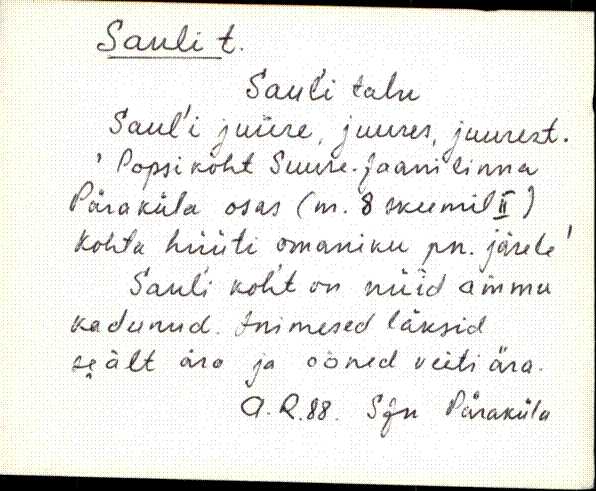 Sauli t.
Saul'i talu
Saul'i juure, juures, juurest.
'Popsikoht Suure-Jaani linna
Päraküla osas (m. 8 skeemil II)
Kohta hüüti omaniku pn. järele'
Sauli koht on nüid ammu
kadunud. Inimesed läksid
seält ära ja ooned veeti ära.
A.R.88. SJn Päraküla